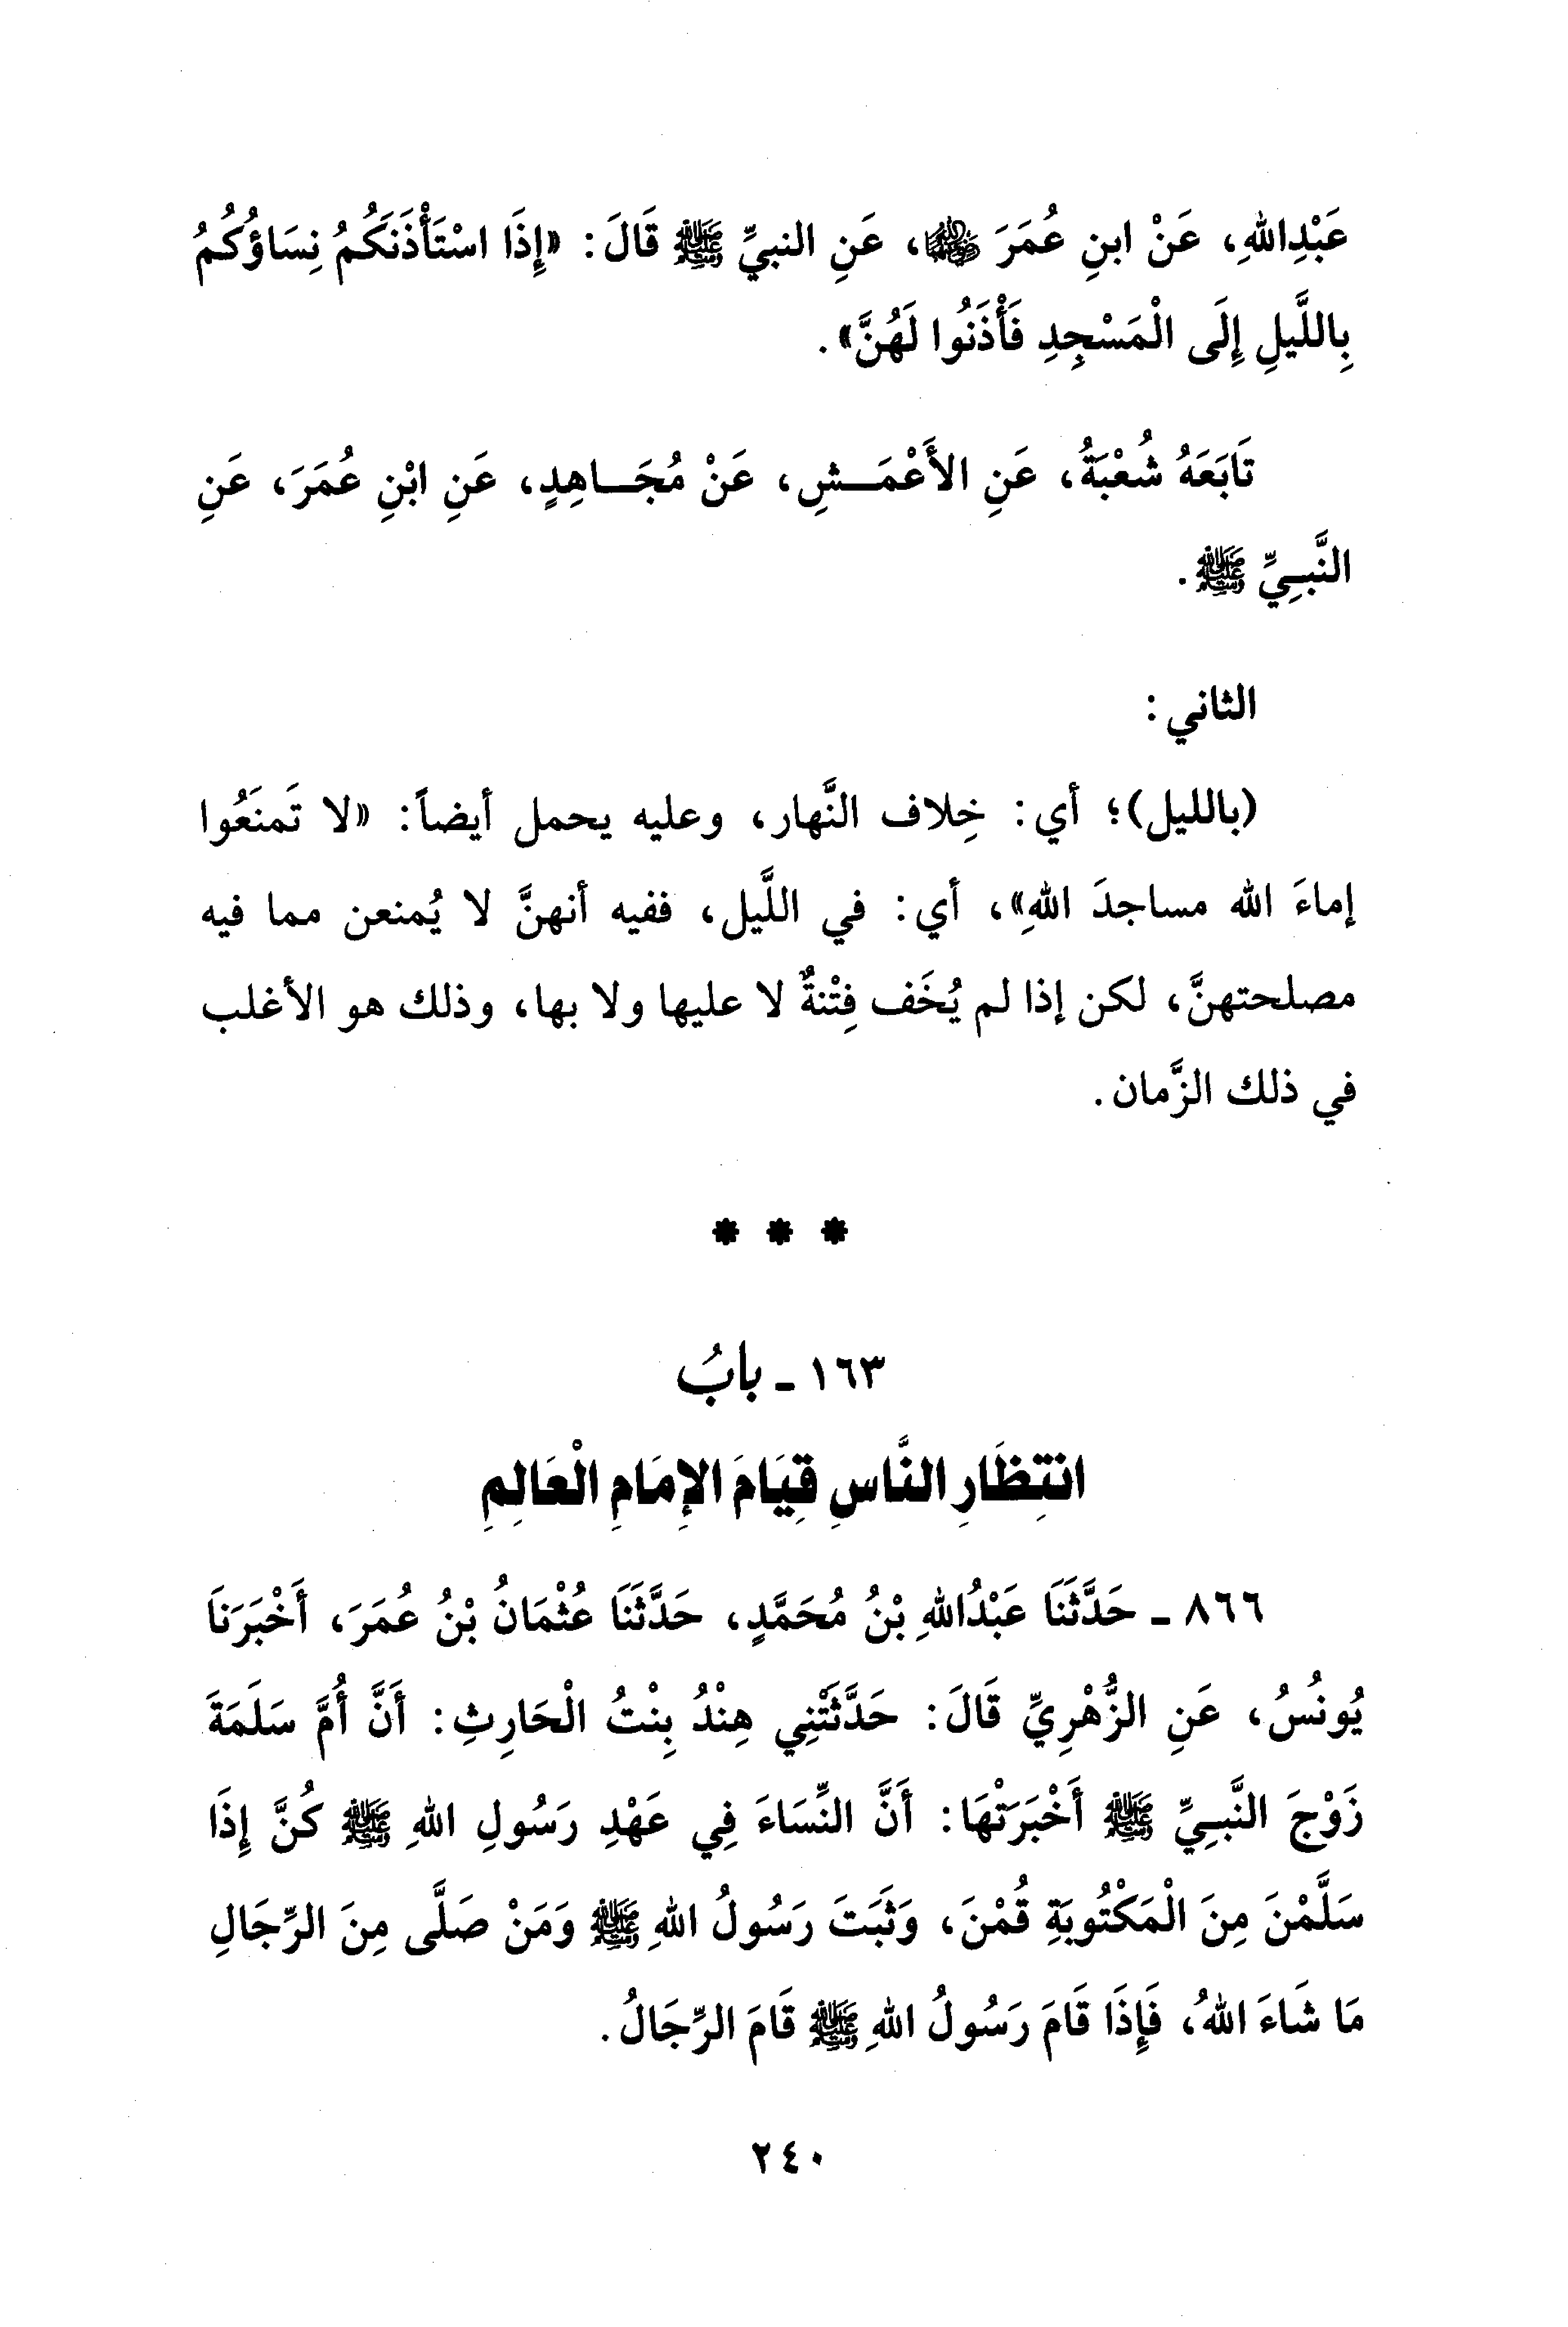 عَبْدِاللهِ، عَنْ ابنِ عُمَرَ ﵄، عَنِ النبيِّ ﷺ قَالَ: «إِذَا اسْتَأْذَنَكُمُ نِسَاؤُكُمُ
بِاللَّيلِ إِلَى الْمَسْجِدِ فَأْذَنُوا لَهُنَّ».
تَابَعَهُ شُعْبَةُ، عَنِ الأَعْمَـــشِ، عَنْ مُجَـــاهِدٍ، عَنِ ابْنِ عُمَرَ، عَنِ
النَّبِيِّ ﷺ.
الثاني:
(بالليل)؛ أي: خِلاف النَّهار، وعليه يحمل أيضاً: «لا تَمنَعُوا
إماءَ الله مساجدَ اللهِ»، أي: في اللَّيل، ففيه أنهنَّ لا يُمنعن مما فيه
مصلحتهنَّ، لكن إذا لم يُخَف فِتْنةٌ لا عليها ولا بها، وذلك هو الأغلب
في ذلك الزَّمان.
* * *
١٦٣ - بابُ
انتِظَارِ النَّاسِ قِيَامَ الإِمَامِ الْعَالِمِ
٨٦٦ - حَدَّثَنَا عَبْدُاللهِ بْنُ مُحَمَّدٍ، حَدَّثَنَا عُثْمَانُ بْنُ عُمَرَ، أَخْبَرَنَا
يُونُسُ، عَنِ الزُّهْرِيِّ قَالَ: حَدَّثَتْنِي هِنْدُ بِنْتُ الْحَارِثِ: أَنَّ أُمَّ سَلَمَةَ
زَوْجَ النَّبِيِّ ﷺ أَخْبَرَتْهَا: أَنَّ النِّسَاءَ فِي عَهْدِ رَسُولِ اللهِ ﷺ كُنَّ إِذَا
سَلَّمْنَ مِنَ الْمَكْتُوبَةِ قُمْنَ، وَثَبَتَ رَسُولُ اللهِ ﷺ وَمَنْ صَلَّى مِنَ الرِّجَالِ
مَا شَاءَ اللهُ، فَإِذَا قَامَ رَسُولُ اللهِ ﷺ قَامَ الرِّجَالُ.
٢٤٠